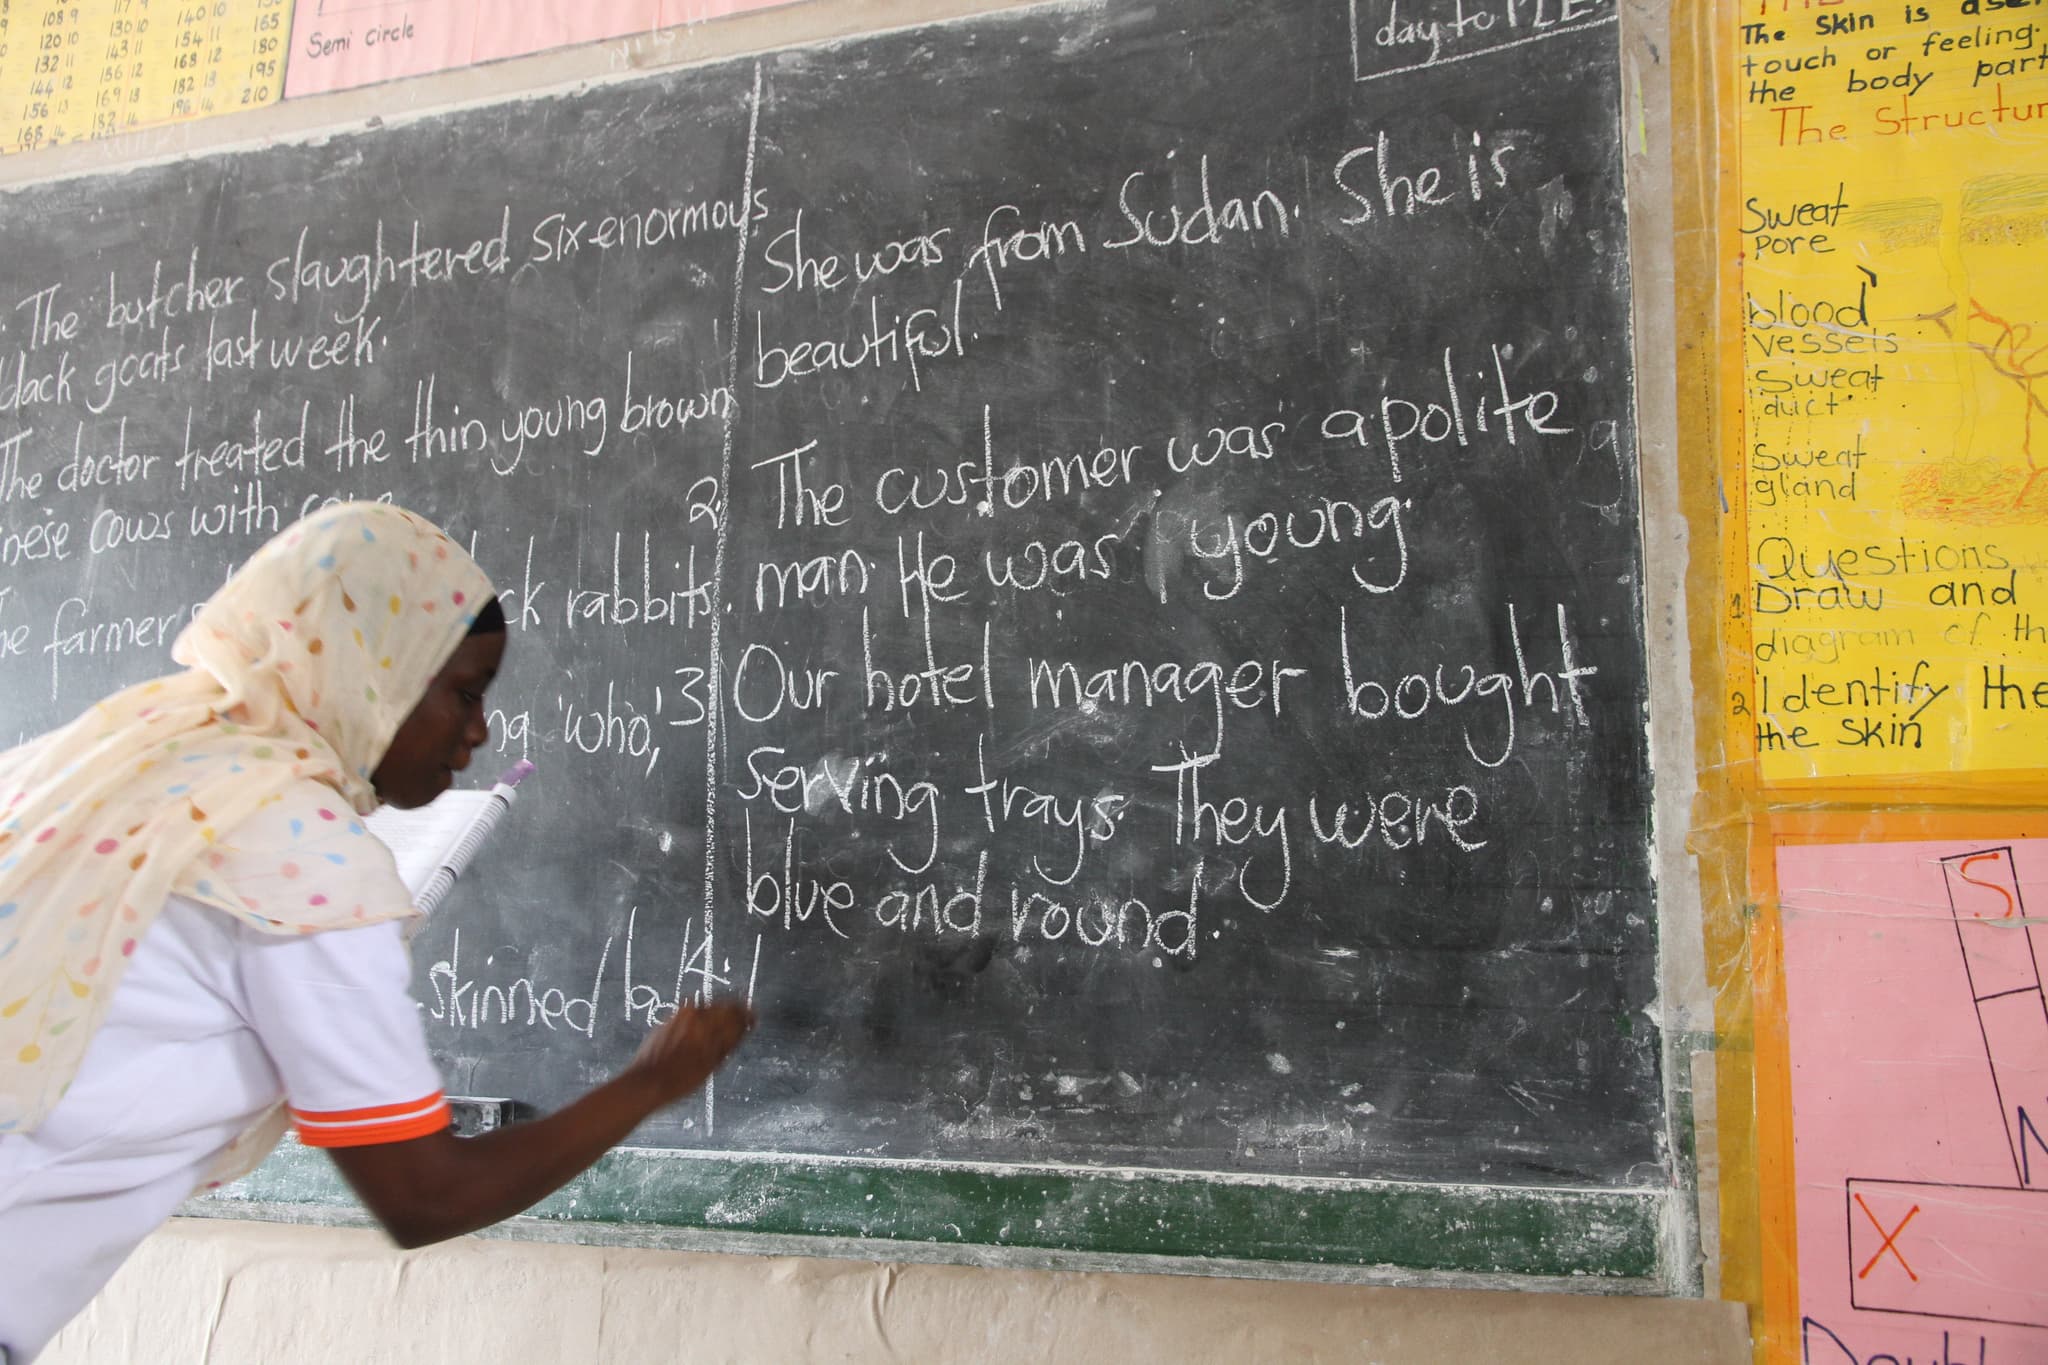 108 9 117 9 130 10 140 10 165
120 10 143 11 154 11 180
132 11 156 12 168 12 195
144 12 169 13 182 13 210
156 13 182 14 196 14
168 14
Semi circle
day to PLE
The butcher slaughtered six enormous
black goats last week.
The doctor treated the thin young brown
cows with
farmer
rabbits.
'who,'
skinned
She was from Sudan. She is
beautiful.
2. The customer was a polite
man. He was young.
3 Our hotel manager bought
serving trays. They were
blue and round.
4.
The Skin is
touch or feeling.
the body part
The Structur
Sweat
pore
blood
vessels
Sweat
duct
Sweat
gland
Questions
1 Draw and
diagram of th
2 Identify the
the skin
S
N
X